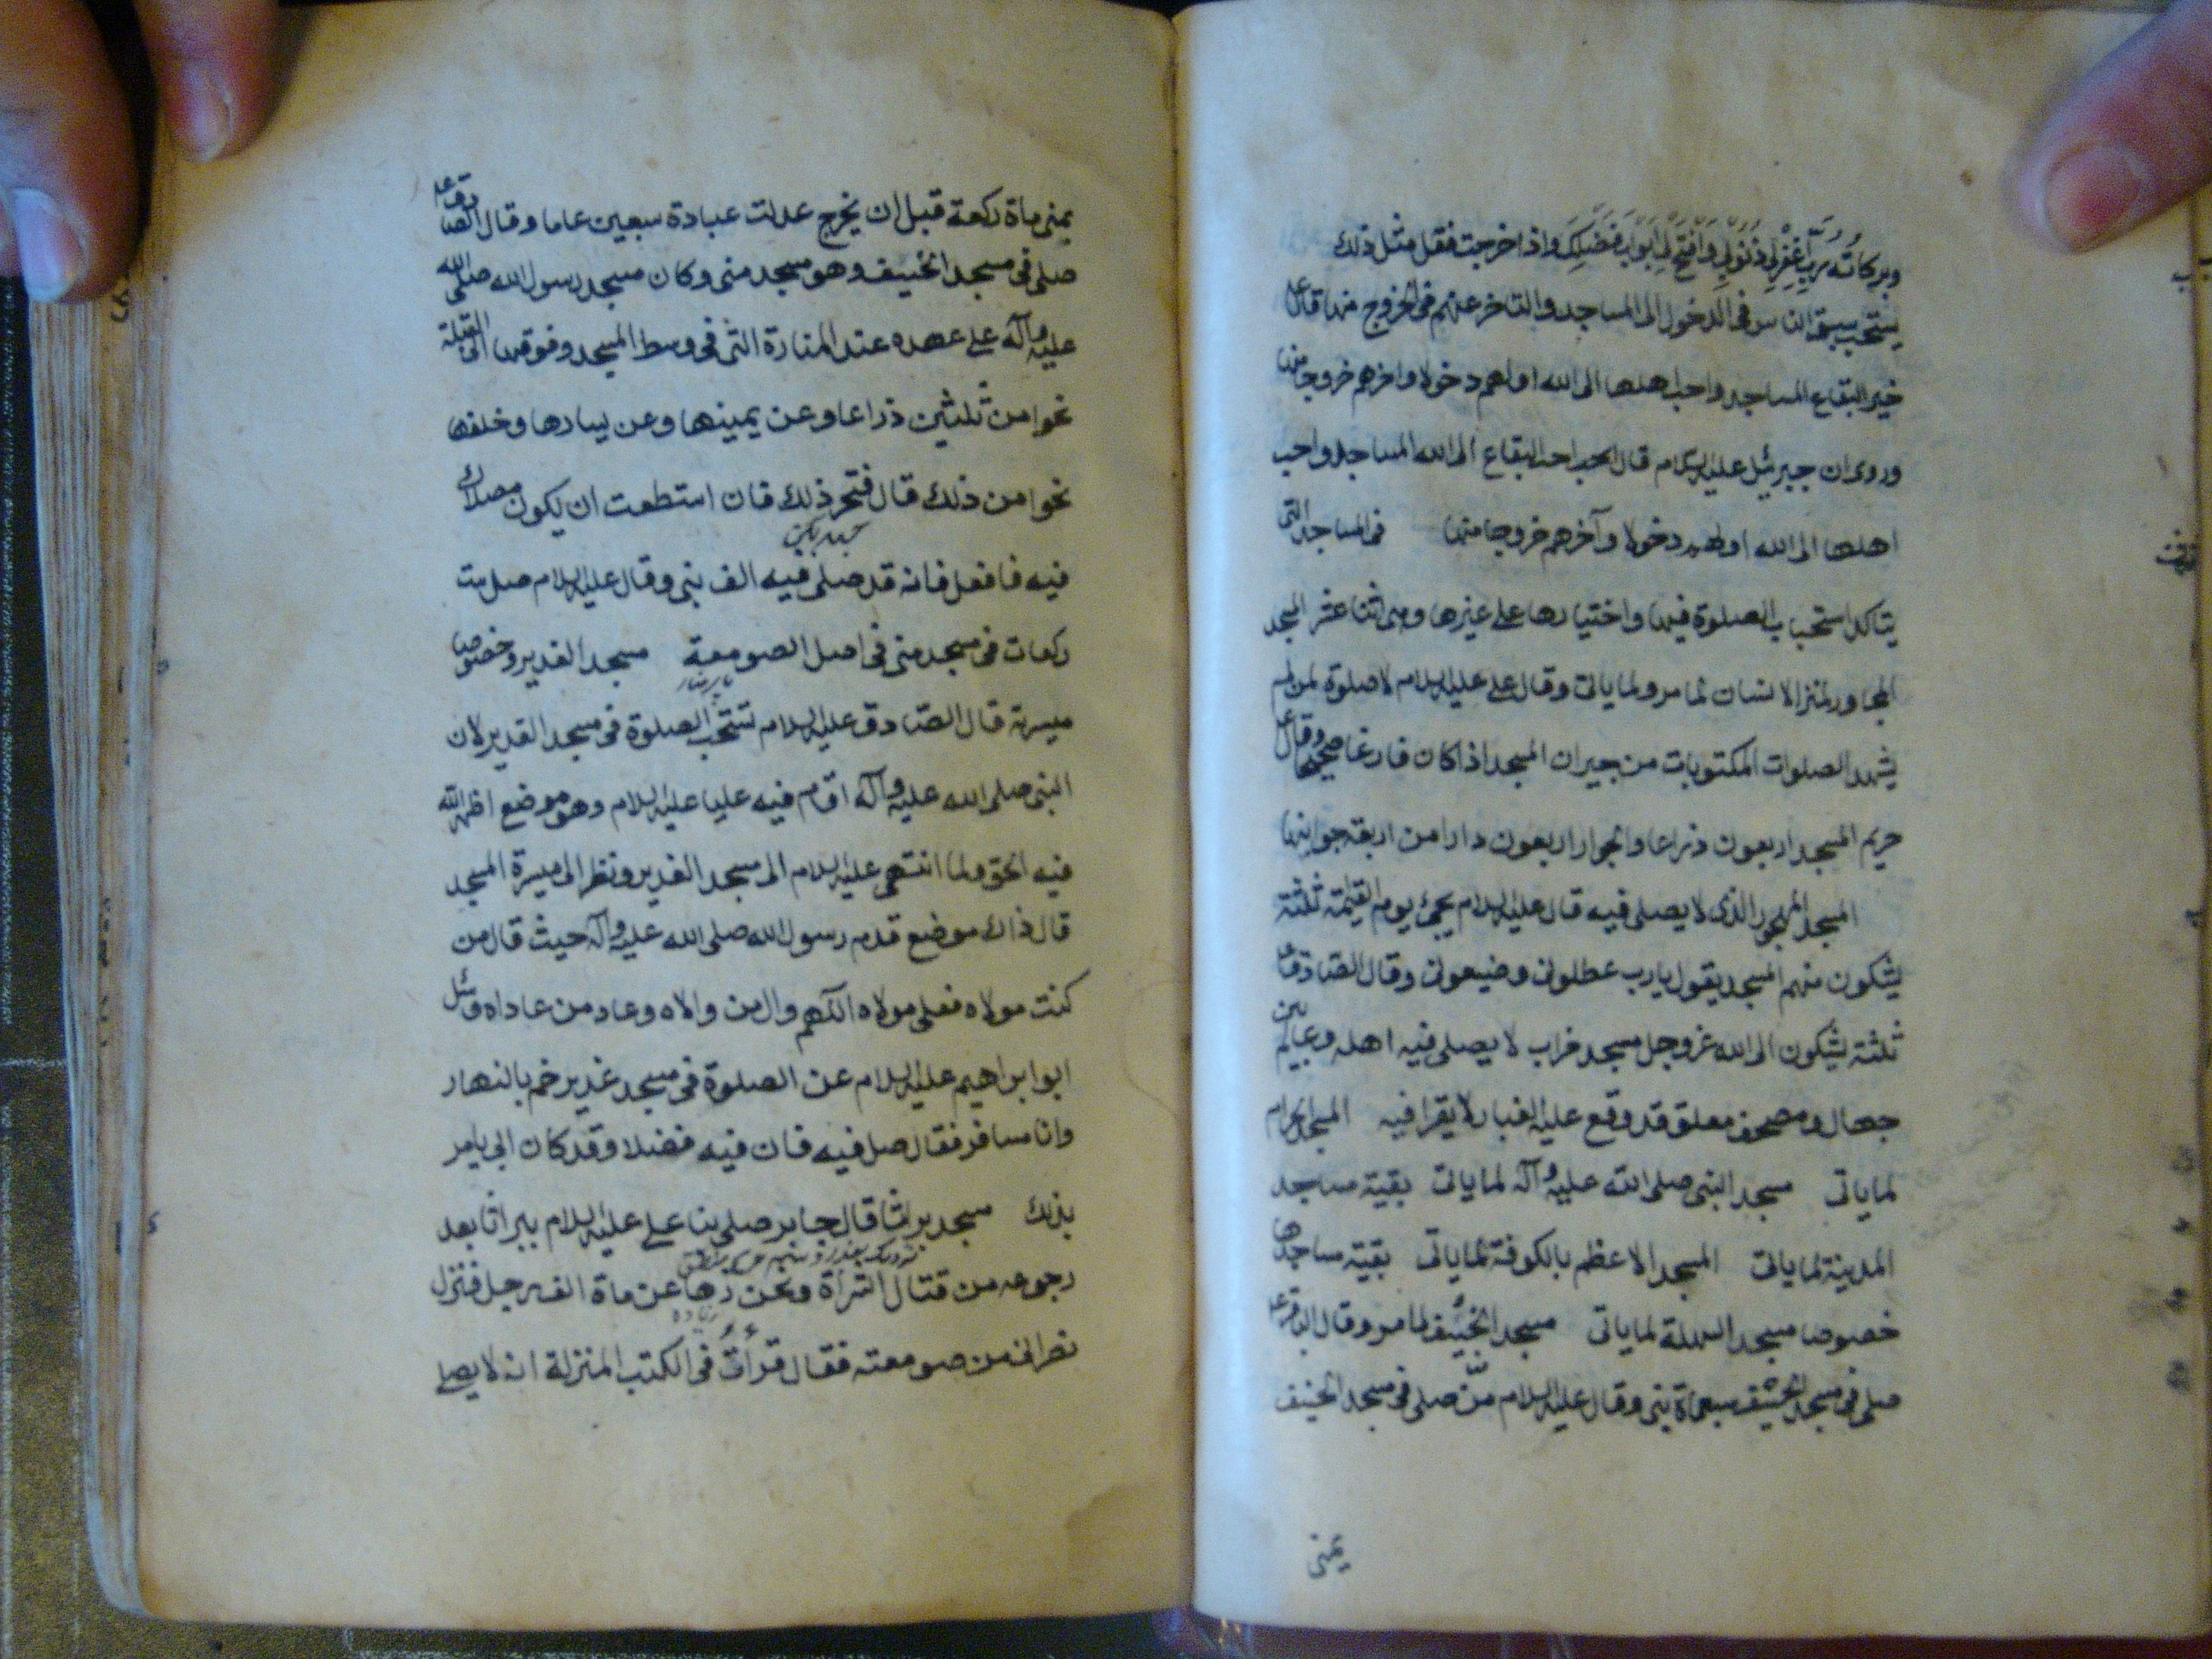 وبركاته رب اغفر لي ذنوبي وافتح لي ابواب فضلك واذا خرجت فقل مثل ذلك
يستحب سبق الناس في الدخول الى المساجد والتاخر عنهم في الخروج منها قال ع
خير البقاع المساجد واحب اهلها الى الله اولهم دخولا واخرهم خروجا منها
وروى ان جبرئيل عليه السلام قال احب البقاع الى الله المساجد واحب
اهلها الى الله اولهم دخولا وآخرهم خروجا منها في المساجد التي
يتاكد استحباب الصلوة فيها واختيارها على غيرها وهي اثنا عشر المسجد
المجاور لمنزل الانسان لما مر ولما ياتى وقال على عليه السلام لا صلوة لمن لم
يشهد الصلوات المكتوبات من جيران المسجد اذا كان فارغا صحيحا وقال ع
حريم المسجد اربعون ذراعا والجوار اربعون دارا من اربعة جوانبها
المسجد المهجور الذى لا يصلى فيه قال عليه السلام يجئ يوم القيمة ثلثة
يشكون منهم المسجد يقول يا رب عطلونى وضيعونى وقال الصادق ع
ثلثة يشكون الى الله عز وجل مسجد خراب لا يصلى فيه اهله وعالم بين
جهال ومصحف معلق قد وقع عليه الغبار لا يقرا فيه المسجد الحرام
لما ياتى مسجد النبى صلى الله عليه وآله لما ياتى بقية مساجد
المدينة لما ياتى المسجد الاعظم بالكوفة لما ياتى بقية مساجدها
خصوصا مسجد السهلة لما ياتى مسجد الخيف لما مر وقال الباقر ع
صلى في مسجد الخيف سبعماة نبى وقال عليه السلام من صلى في مسجد الخيف
بمنى
بمنى ماة ركعة قبل ان يخرج عدلت عبادة سبعين عاما وقال الصادق ع
صلى في مسجد الخيف وهو مسجد منى وكان مسجد رسول الله صلى الله
عليه وآله على عهده عند المنارة التى في وسط المسجد وفوقها الى القبلة
نحوا من ثلثين ذراعا وعن يمينها وعن يسارها وخلفها
نحوا من ذلك قال فتحر ذلك فان استطعت ان يكون مصلاك
فيه فافعل فانه قد صلى فيه الف نبى وقال عليه السلام صل ست
ركعات في مسجد منى في اصل الصومعة مسجد الغدير وخصوصا
ميسرته قال الصادق عليه السلام تستحب الصلوة في مسجد الغدير لان
النبى صلى الله عليه وآله اقام فيه عليا عليه السلام وهو موضع اظهر الله
فيه الحق ولما انتهى عليه السلام الى مسجد الغدير ونظر الى ميسرة المسجد
قال ذاك موضع قدم رسول الله صلى الله عليه وآله حيث قال من
كنت مولاه فعلى مولاه اللهم وال من والاه وعاد من عاداه وسئل
ابو ابراهيم عليه السلام عن الصلوة في مسجد غدير خم بالنهار
وانا مسافر فقال صل فيه فان فيه فضلا وقد كان ابى يامر
بذلك مسجد براثا قال جابر صلى بنا على عليه السلام ببراثا بعد
رجوعه من قتال الشراة ونحن زهاء عن ماة الف رجل فنزل
زياده
نصرانى من صومعته فقال قرات في الكتب المنزلة انه لا يصلى